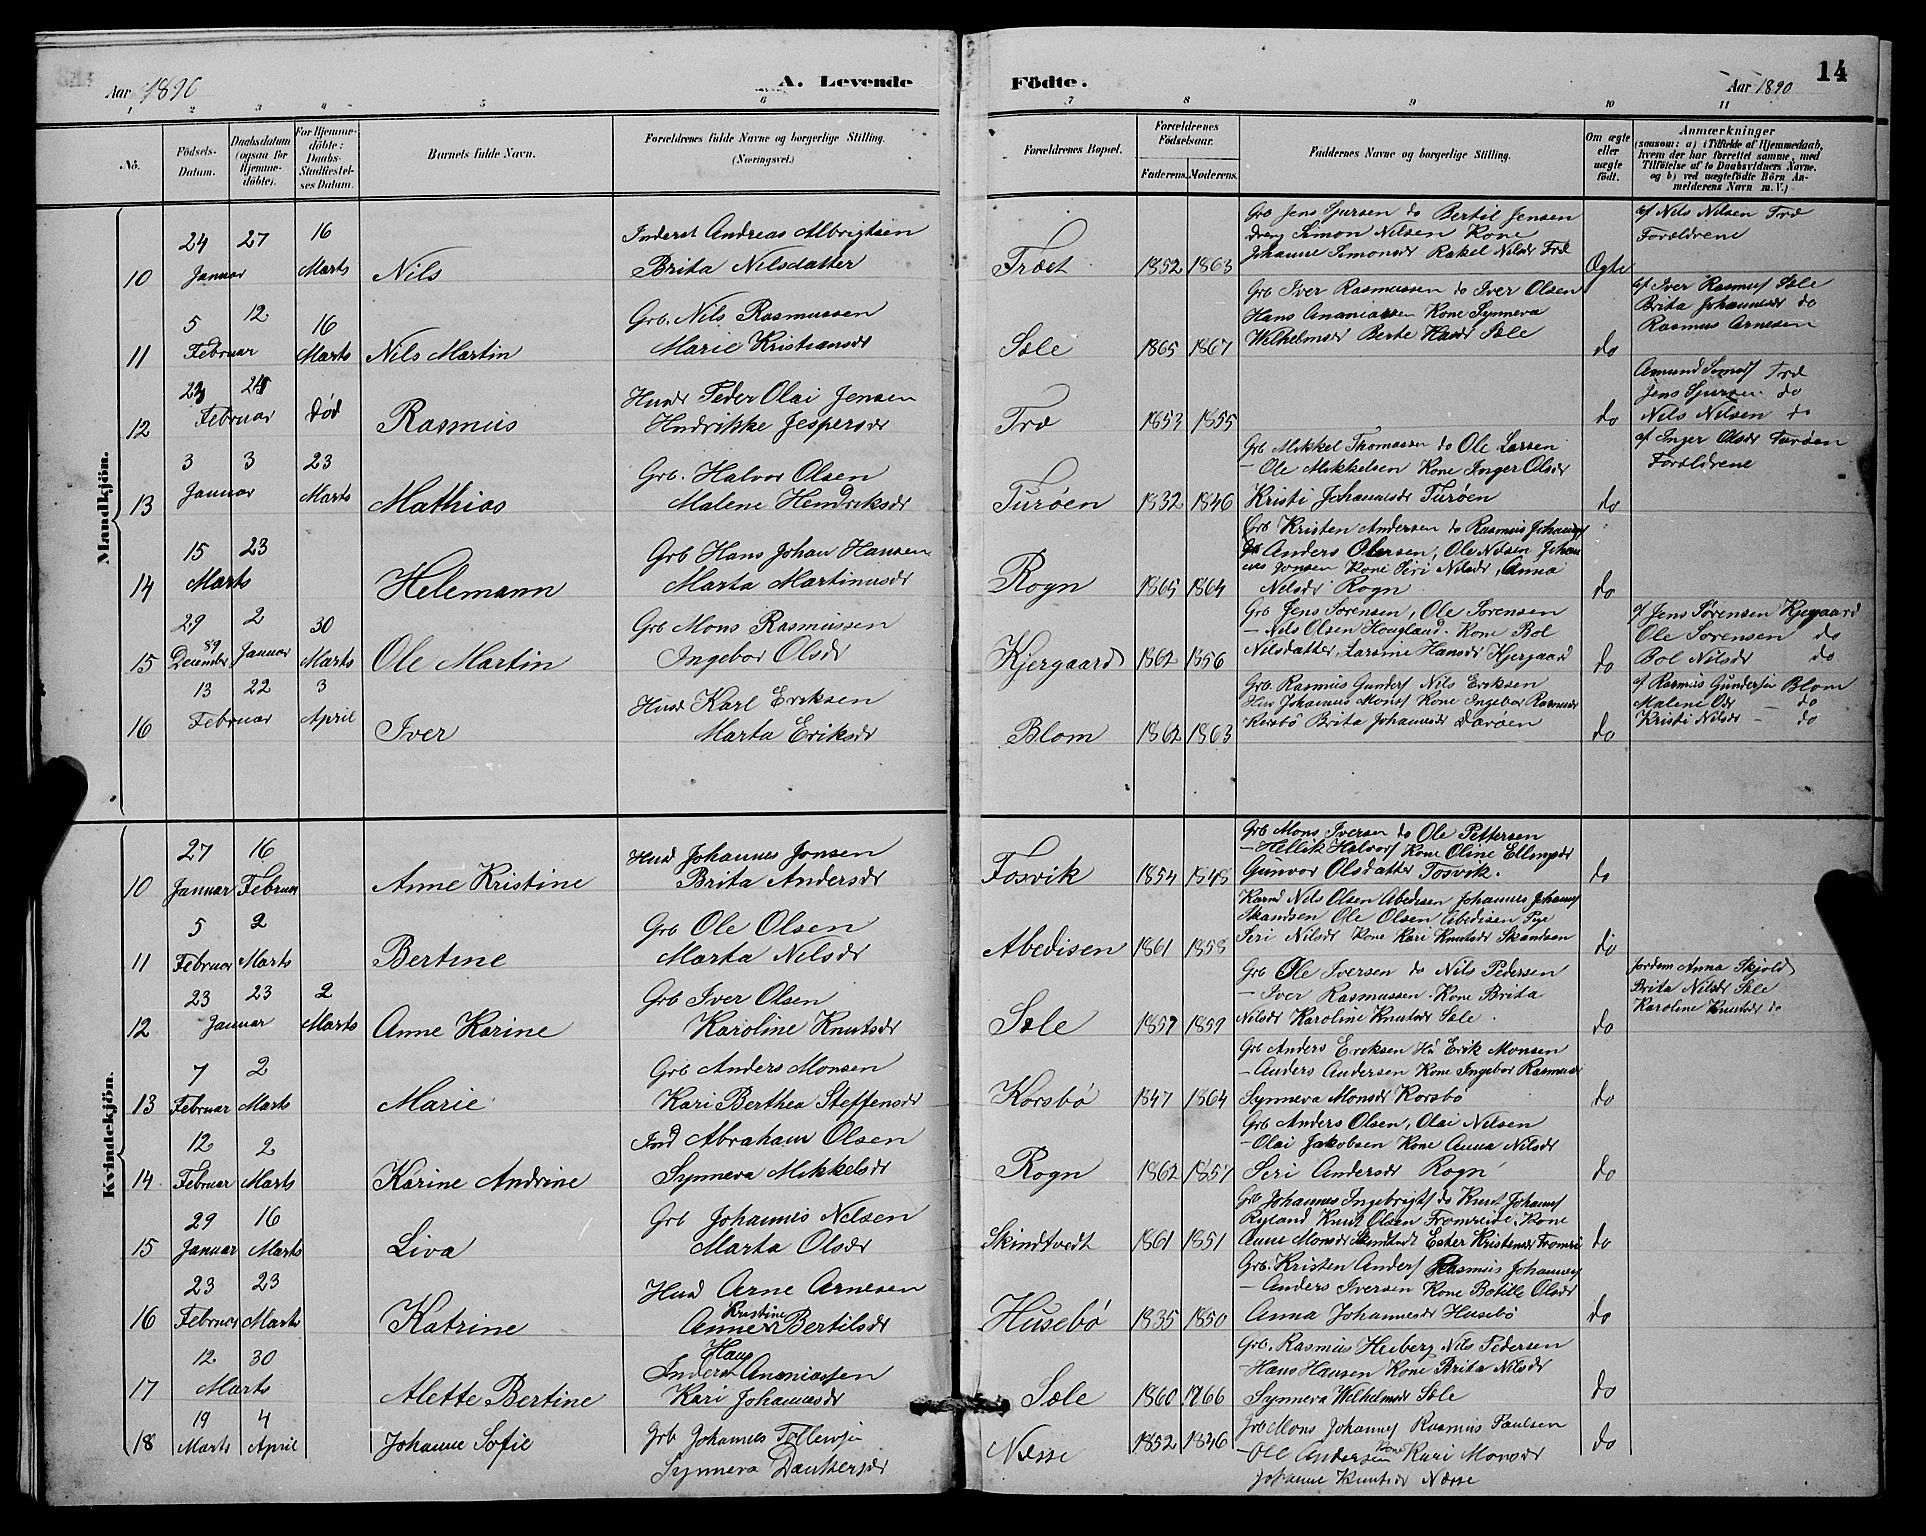 Aar 1890
A. Levende
Födte.
Aar 1890
14
1 2 3 4 5 6 7 8 9 10 11
No.
Födsels-
Datum.
Daabsdatum
(ogsaa for
Hjemme-
döbte).
For Hjemme-
döbte:
Daabs-
Stadfæstel-
ses Datum.
Barnets fulde Navn.
Forældrenes fulde Navne og borgerlige Stilling.
(Næringsvei.)
Forældrenes Bopæl.
Forældrenes
Födselsaar.
Faderens. Moderens.
Faddernes Navne og borgerlige Stilling.
Om ægte
eller
uægte
födt.
Anmærkninger
(saasom: a) i Tilfælde af Hjemmedaab,
hvem der har forrettet samme, med
Tilföielse af to Daabsvidners Navne.
og b) ved uægtefödte Börn An-
melderens Navn m. V.)
Mandkjön.
24 27 16
Januar Marts
10 Nils
Inderst Andreas Albrigtsen
Brita Nilsdatter
Træet 1852 1863
Grb Jens Sjursen do Bertil Jensen
dreng Simon Nilsen Kone
Johanne Simonsdr Rakel Nilsdr Træ
Ægte
af Nils Nilsen Træ
Forældrene
5 12 16
11 Februar Marts Nils Martin
Grb. Nils Rasmussen
Marie Kristiansdr
Sæle 1865 1867
Grb Iver Rasmussen do Iver Olsen
Hans Ananiassen Kone Synneva
Wilhelmsdr Berte Hansdr Sæle
do
af Iver Rasmus Sæle
Brita Johannesdr do
Rasmus Arnesen
23 24
12 Februar død Rasmus
Husm Peder Olai Jensen
Hendrikke Jespersdr
Træ 1853 1855
do
Amund Simons Træ
Jens Sjursen do
Nils Nilsen do
3 3 23
13 Januar Marts Mathias
Grb. Halvor Olsen
Malene Hendriksdr
Turøen 1832 1846
Grb Mikkel Thomassen do Ole Larsen
– Ole Mikkelsen Kone Inger Olsdr
Kristi Johannesdr Turøen
do
af Inger Olsdr Turøen
Forældrene
15 23
14 Marts Helemann
Grb Hans Johan Hansen
Marta Martinusdr
Rogn 1865 1864
Grb Kristen Andersen do Rasmus Johannes
Anders Olersen, Ole Nilsen Johan
nes Jonsen Kone Siri Nilsdr, Anna
Nilsdr Rogn
do
29 2 30
89
15 December Januar Marts Ole Martin
Grb Mons Rasmussen
Ingebor Olsdr
Kjergaard 1862 1856
Grb Jens Sørensen, Ole Sørensen
– Nils Olsen Hougland. Kone Bol
Nilsdatter, Larsine Hansdr Kjergaard
do
af Jens Sørensen Kjegaard
Ole Sørensen do
Bol Nilsdr do
13 22 3
16 Februar April Iver
Husm Karl Eriksen
Marta Eriksdr
Blom 1862 1863
Grb. Rasmus Gunders Nils Eriksen
Hus Johannes Mons Kone Ingebor Rasmusdr
Korsbø Brita Johannesdr Davøen
do
af Rasmus Gundersen Blom
Malene Odr – do
Kristi Nilsdr – do
Kvindekjön.
27 16
10 Januar Februar Anne Kristine
Husm Johannes Jonsen
Brita Andersdr
Fosvik 1854 1848
Grb Mons Iversen do Ole Pettersen
– Hellik Halvors Kone Oline Ellingsdr
Gunvor Olsdatter Fosvik.
do
5 2
11 Februar Marts Bertine
Grb Ole Olsen
Marta Nilsdr
Abedisen 1861 1858
Karm Nils Olsen Abedisen Johannes Johannes
Skandsen Ole Olsen Abedisen Pige
Seri Nilsdr Kone Kari Knutsdr Skandsen
do
23 23 2
12 Januar Marts Anne Karine
Grb Iver Olsen
Karoline Knutsdr
Sæle 1857 1859
Grb Ole Iversen do Nils Pedersen
– Iver Rasmussen. Kone Brita
Nilsdr Karoline Knutsdr Sæle.
do
Jordem Anna Skjold
Brita Nilsdr Sæle
Karoline Knutsdr do
7 2
13 Februar Marts Marie
Grb Anders Monsen
Kari Berthea Steffensdr
Korsbø 1847 1864
Grb Anders Eriksen Hu Erik Monsen
– Anders Andersen Kone Ingebor Rasmusd
Synneva Monsdr Korsbø
do
12 2
14 Februar Marts Karine Andrine
Ind Abraham Olsen
Synneva Mikkelsdr
Rogn 1862 1857
Grb Anders Olsen, Olai Nilsen
– Olai Jakobsen Kone Anna Nilsdr
Seri Andersdr Rogn
do
29 16
15 Januar Marts Liva
Grb Johannes Nelsen
Marta Olsdr
Skindtvedt 1861 1851
Grb Johannes Ingebrigts do Knut Johannes
Ryland Knut Olsen Fromreide, Kone
Anne Monsdr Skindtvedt Ester Kristensdr Fromrei
do
23 23
16 Februar Marts Katrine
Husm Arne Arnesen
Kristine
Anne Bertilsdr
Husebø 1835 1850
Grb. Kristen Anders Rasmus Johannes
– Anders Iversen Kone Botille Olsdr
Anna Johannesdr Husebø
do
12 30
17 Marts Alette Bertine
Hans
Inderst Ananiassen
Kari Johannesdr
Sæle 1860 1766
Grb. Rasmus Heiberg Nils Pedersen
– Hans Hansen Kone Brita Nilsdr
Synneva Welhelmsdr Sæle
do
19 4
18 Marts April Johanne Sofie
Grb Johannes Tollevsen
Synneva Dantkersdr
Næsse 1852 1846
Grb Mons Johannes Rasmus Paulsen
– Ole Andersen Kone Kari Monsdr
Johanne Knutsdr Næsse
do